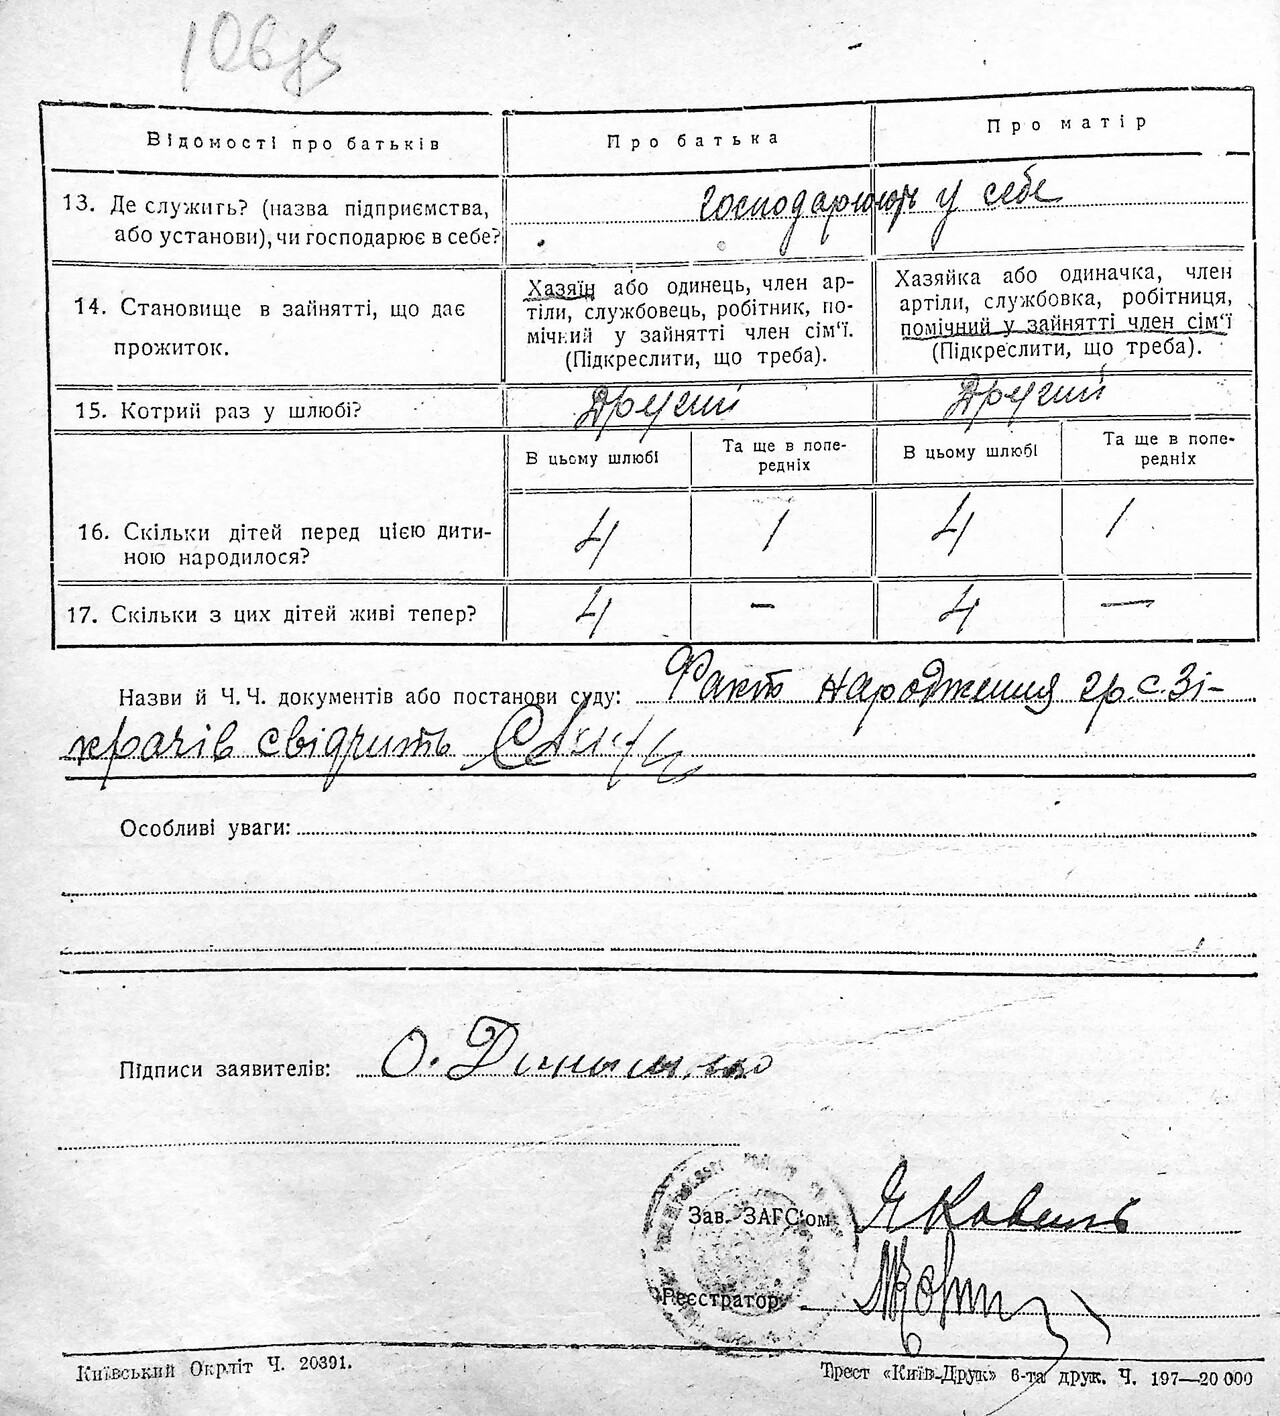 Відомості про батьків Про батька Про матір
13. Де служить? (назва підприємства,
або установи), чи господарює в себе?
господарюють у себе
14. Становище в зайнятті, що дає
прожиток.
Хазяїн або одинець, член ар-
тілі, службовець, робітник, по-
мічний у зайнятті член сім'ї.
(Підкреслити, що треба).
Хазяйка або одиначка, член
артілі, службовка, робітниця,
помічний у зайнятті член сім'ї
(Підкреслити, що треба).
15. Котрий раз у шлюбі? Другий Другий
В цьому шлюбі
Та ще в попе-
редніх
В цьому шлюбі
Та ще в попе-
редніх
16. Скільки дітей перед цією дити-
ною народилося?
4 1 4 1
17. Скільки з цих дітей живі тепер? 4 — 4 —
Назви й Ч. Ч. документів або постанови суду: Факт народження гр. с. Зі-
крачів свідчить
Особливі уваги:
Підписи заявителів: О.
Зав. ЗАГС'ом Я Коваль
Реєстратор
Київський Окрліт Ч. 20391.
Трест «Київ-Друк» 6-та друк. Ч. 197—20 000